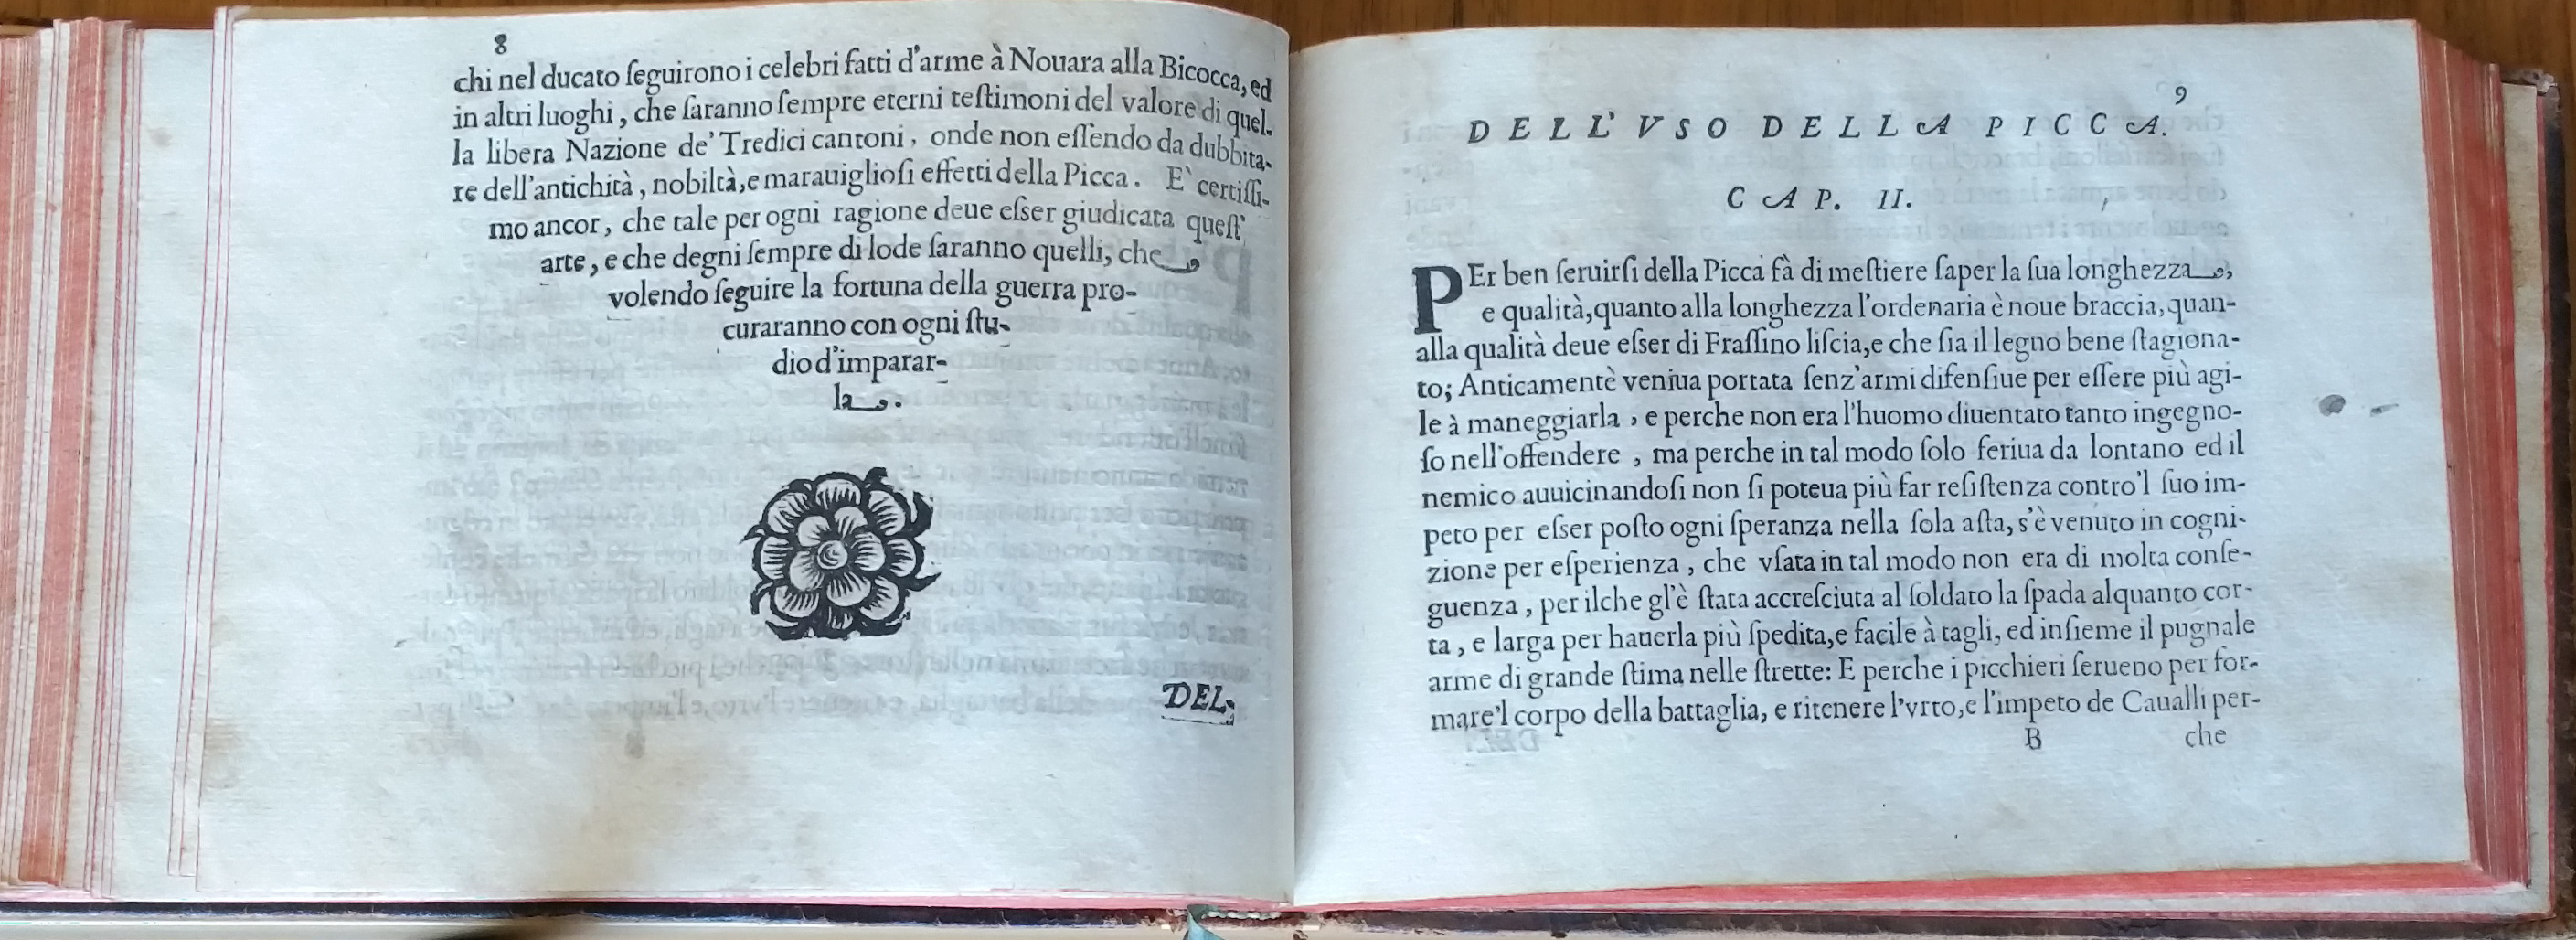 8
chi nel ducato ſeguirono i celebri fatti d'arme à Nouara alla Bicocca, ed
in altri luoghi, che ſaranno ſempre eterni teſtimoni del valore di quel-
la libera Nazione de' Tredici cantoni, onde non eſſendo da dubbita-
re dell'antichità, nobiltà, e marauiglioſi effetti della Picca. E` certiſſi-
mo ancor, che tale per ogni ragione deue eſser giudicata queſt'
arte, e che degni ſempre di lode ſaranno quelli, che
volendo ſeguire la fortuna della guerra pro-
curaranno con ogni ſtu-
dio d'imparar-
la.
DEL-
9
DELL' VSO DELLA PICCA.
CAP. II.
PEr ben ſeruirſi della Picca fà di meſtiere ſaper la ſua longhezza,
e qualità, quanto alla longhezza l'ordenaria è noue braccia, quan-
alla qualità deue eſser di Fraſſino liſcia, e che ſia il legno bene ſtagiona-
to; Anticamentè veniua portata ſenz'armi difenſiue per eſſere più agi-
le à maneggiarla, e perche non era l'huomo diuentato tanto ingegno-
ſo nell'offendere, ma perche in tal modo ſolo feriua da lontano ed il
nemico auuicinandoſi non ſi poteua più far reſiſtenza contro'l ſuo im-
peto per eſser poſto ogni ſperanza nella ſola aſta, s'è venuto in cogni-
zione per eſperienza, che vſata in tal modo non era di molta conſe-
guenza, per ilche gl'è ſtata accreſciuta al ſoldato la ſpada alquanto cor-
ta, e larga per hauerla più ſpedita, e facile à tagli, ed inſieme il pugnale
arme di grande ſtima nelle ſtrette: E perche i picchieri ſerueno per for-
mare'l corpo della battaglia, e ritenere l'vrto, e l'impeto de Caualli per-
B che